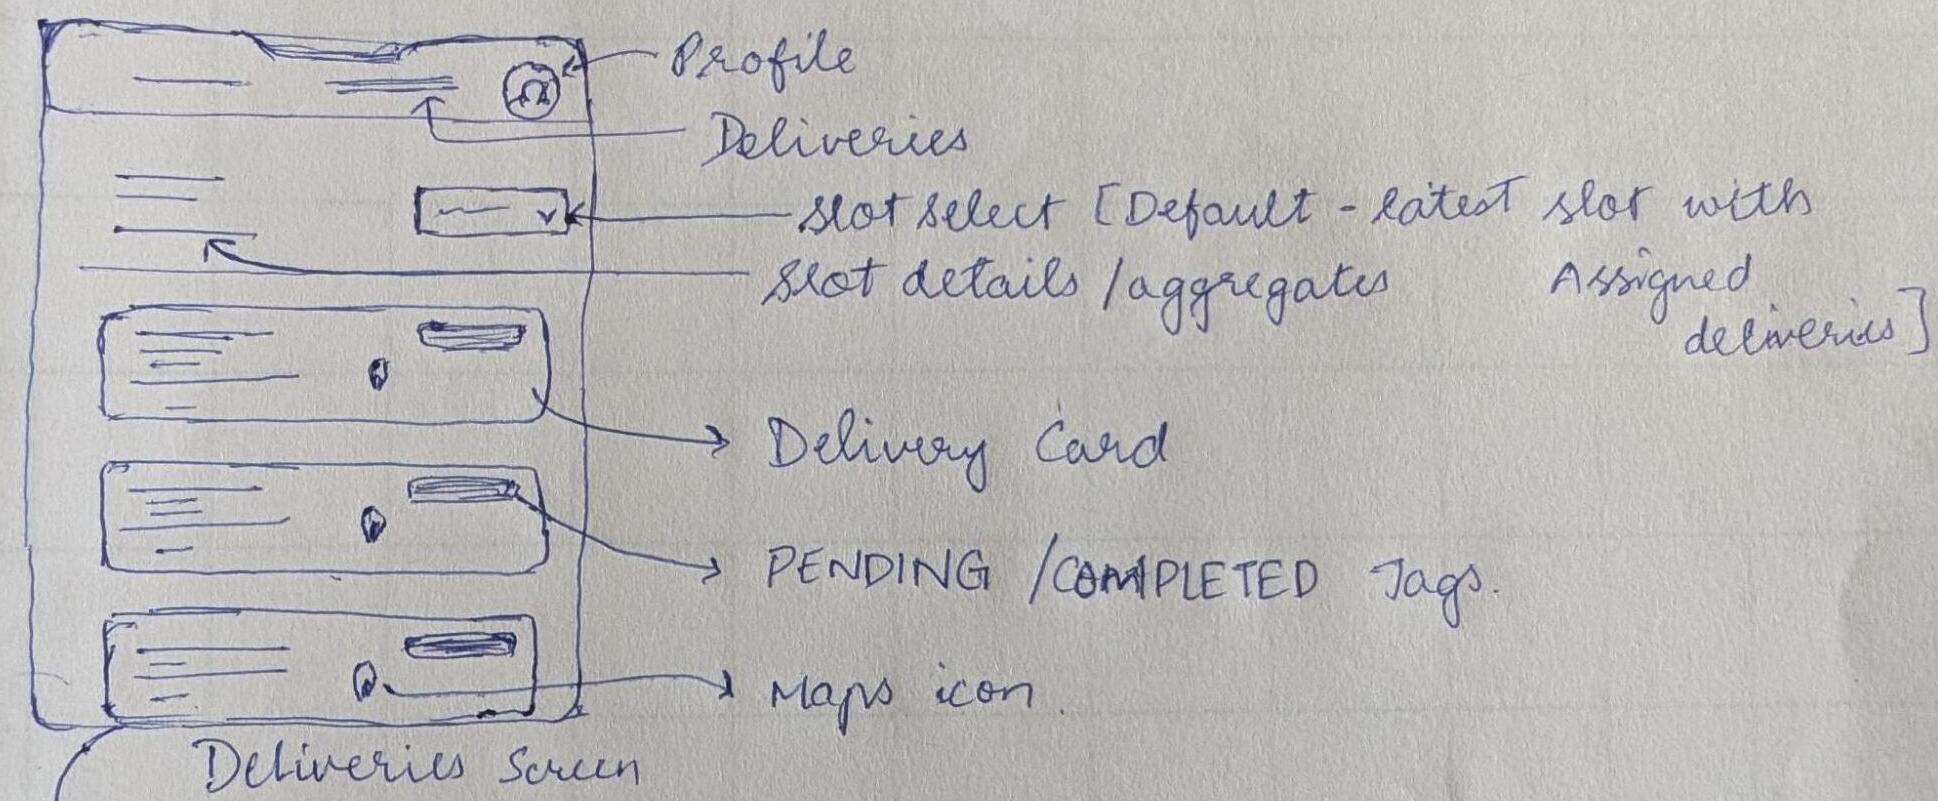 Profile
Deliveries
Slot select [Default - latest slot with
Assigned
deliveries]
Slot details / aggregates
Delivery Card
PENDING / COMPLETED Tags.
Maps icon.
Deliveries Screen